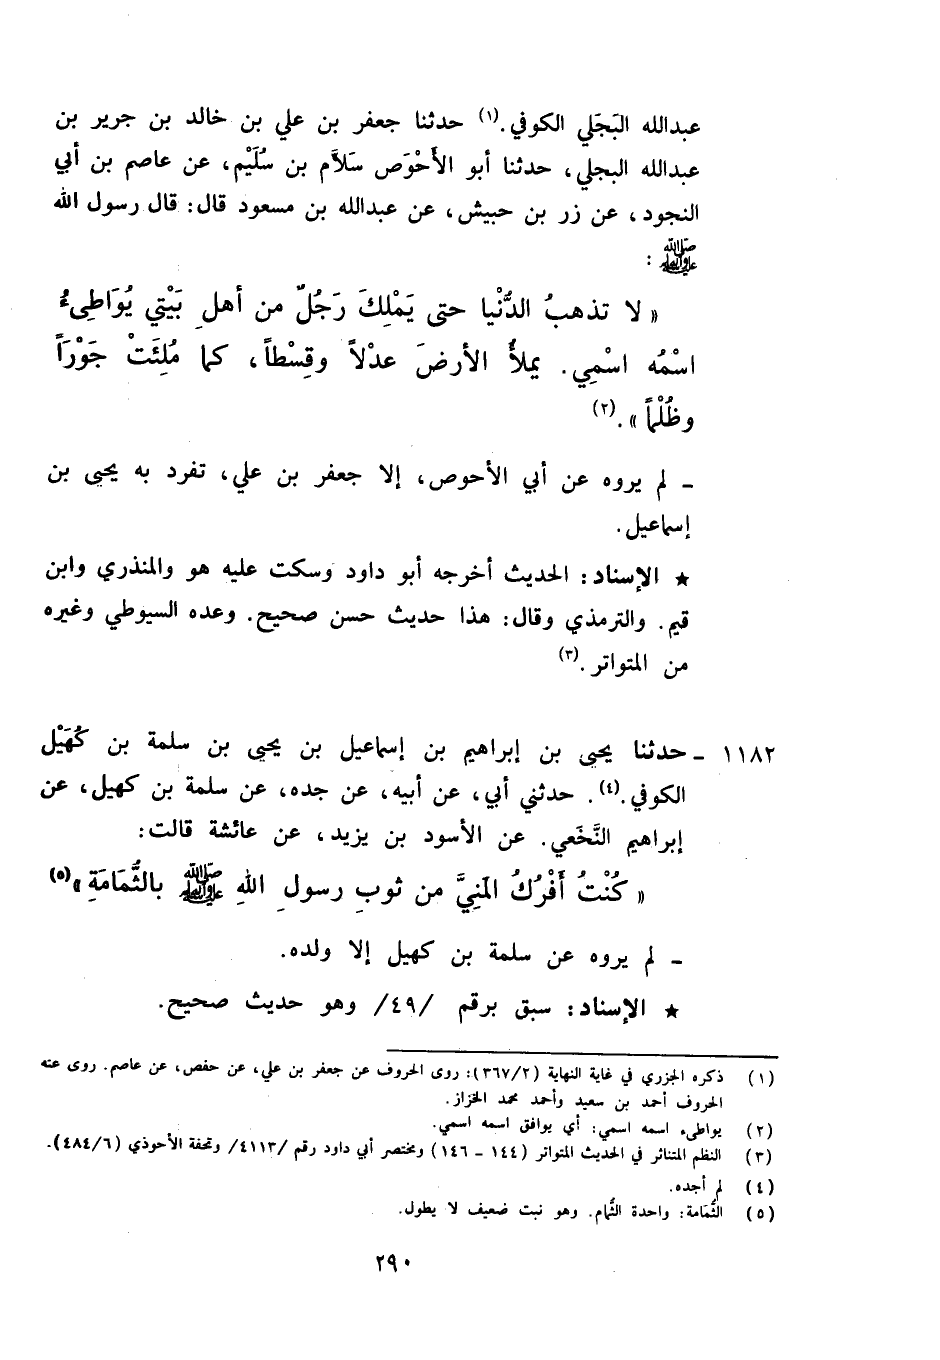 عبدالله البَجَلي الكوفي.(١) حدثنا جعفر بن علي بن خالد بن جرير بن
عبدالله البجلي، حدثنا أبو الأَحْوَص سَلاَّم بن سُلَيْم، عن عاصم بن أبي
النجود، عن زر بن حبيش، عن عبدالله بن مسعود قال: قال رسول الله
ﷺ :
« لا تذهبُ الدُّنْيا حتى يَمْلِكَ رَجُلٌ من أهلِ بَيْتي يُوَاطِىءُ
اسْمُه اسْمِي. يملأُ الأرضَ عدْلاً وقِسْطاً، كما مُلِئَتْ جَوْرَاً
وظُلْماً ».(٢)
ـ لم يروه عن أبي الأحوص، إلا جعفر بن علي، تفرد به يحيى بن
إسماعيل.
★ الإسناد: الحديث أخرجه أبو داود وسكت عليه هو والمنذري وابن
قيم. والترمذي وقال: هذا حديث حسن صحيح. وعده السيوطي وغيره
من المتواتر.(٣)
١١٨٢ ـ حدثنا يحيى بن إبراهيم بن إسماعيل بن يحيى بن سلمة بن كُهَيْل
الكوفي.(٤). حدثني أبي، عن أبيه، عن جده، عن سلمة بن كهيل، عن
إبراهيم النَّخَعي. عن الأسود بن يزيد، عن عائشة قالت:
« كُنْتُ أَفْرُكُ المَنِيَّ من ثوبِ رسولِ اللهِ ﷺ بالثُّمَامَةِ »(٥)
ـ لم يروه عن سلمة بن كهيل إلا ولده.
★ الإسناد: سبق برقم /٤٩/ وهو حديث صحيح.
(١) ذكره الجزري في غاية النهاية (٣٦٧/٢): روى الحروف عن جعفر بن علي، عن حفص، عن عاصم. روى عنه
الحروف أحمد بن سعيد وأحمد محمد الخزاز.
(٢) يواطىء اسمه اسمي: أي يوافق اسمه اسمي.
(٣) النظم المتناثر في الحديث المتواتر (١٤٤ ـ ١٤٦) ومختصر أبي داود رقم /٤١١٣/ وتحفة الأحوذي (٤٨٤/٦).
(٤) لم أجده.
(٥) الثُّمَامَة: واحدة الثُّمام. وهو نبت ضعيف لا يطول.
٢٩٠